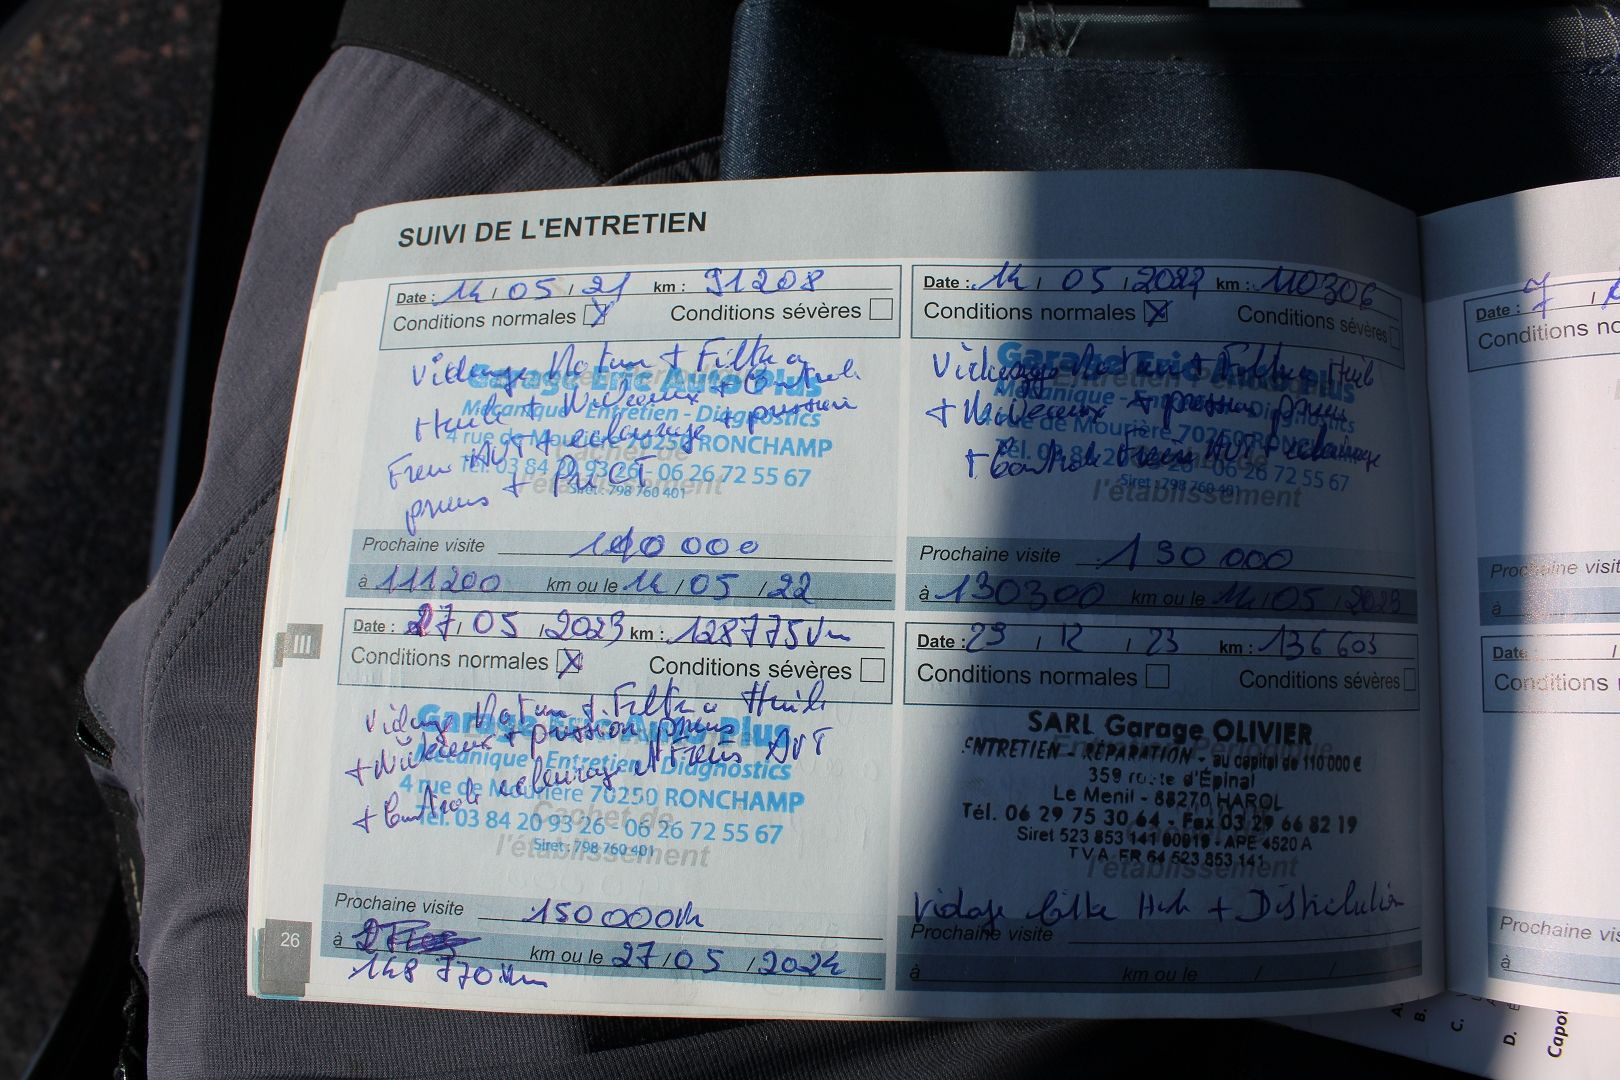 SUIVI DE L'ENTRETIEN
Date : 14 / 05 / 21 km : 91208
Conditions normales Conditions sévères
Vidange Moteur + Filtre a
Garage Eric Auto Plus
Huile + Niveaux + Controle
Mécanique - Entretien - Diagnostics
Frein AVT + eclairage + pression
4 rue de Mourière 70250 RONCHAMP
Cachet de
pneus + Pré CT
Tél. 03 84 20 93 26 - 06 26 72 55 67
Siret : 798 760 401
l'établissement
Prochaine visite 110 000
à 111200 km ou le 14 / 05 / 22
Date : 14 / 05 / 2022 km : 110306
Conditions normales Conditions sévères
Vidange Moteur + Filtre Huile
Garage Eric Auto Plus
+ Niveaux + pression pneus
Mécanique - Entretien - Diagnostics
4 rue de Mourière 70250 RONCHAMP
+ Controle Freins AVT + eclairage
Tél. 03 84 20 93 26 - 06 26 72 55 67
Siret : 798 760 401
l'établissement
Prochaine visite 130 000
à 130300 km ou le 14 / 05 / 2023
Date : 27 / 05 / 2023 km : 128775 km
Conditions normales Conditions sévères
Vidange Moteur + Filtre a Huile
Garage Eric Auto Plus
+ Niveaux + pression pneus
Mécanique - Entretien - Diagnostics
+ Controle eclairage + Freins AVT
4 rue de Mourière 70250 RONCHAMP
Cachet de
Tél. 03 84 20 93 26 - 06 26 72 55 67
Siret : 798 760 401
l'établissement
Prochaine visite 150 000 km
à km ou le 27 / 05 / 2024
148 770 km
Date : 29 / 12 / 23 km : 136603
Conditions normales Conditions sévères
SARL Garage OLIVIER
ENTRETIEN - RÉPARATION - au capital de 110 000 €
359 route d'Épinal
Le Menil - 88270 HAROL
Tél. 06 29 75 30 64 - Fax 03 29 66 82 19
Siret 523 853 141 00019 - APE 4520 A
TVA FR 64 523 853 141
l'établissement
Vidage filtre Huile + Distribution
Prochaine visite
à km ou le / /
III
26
Date : 7 /
Conditions no
Prochaine visit
à
Date /
Conditions n
Prochaine visi
à
A.
B.
C.
D. E
Capot